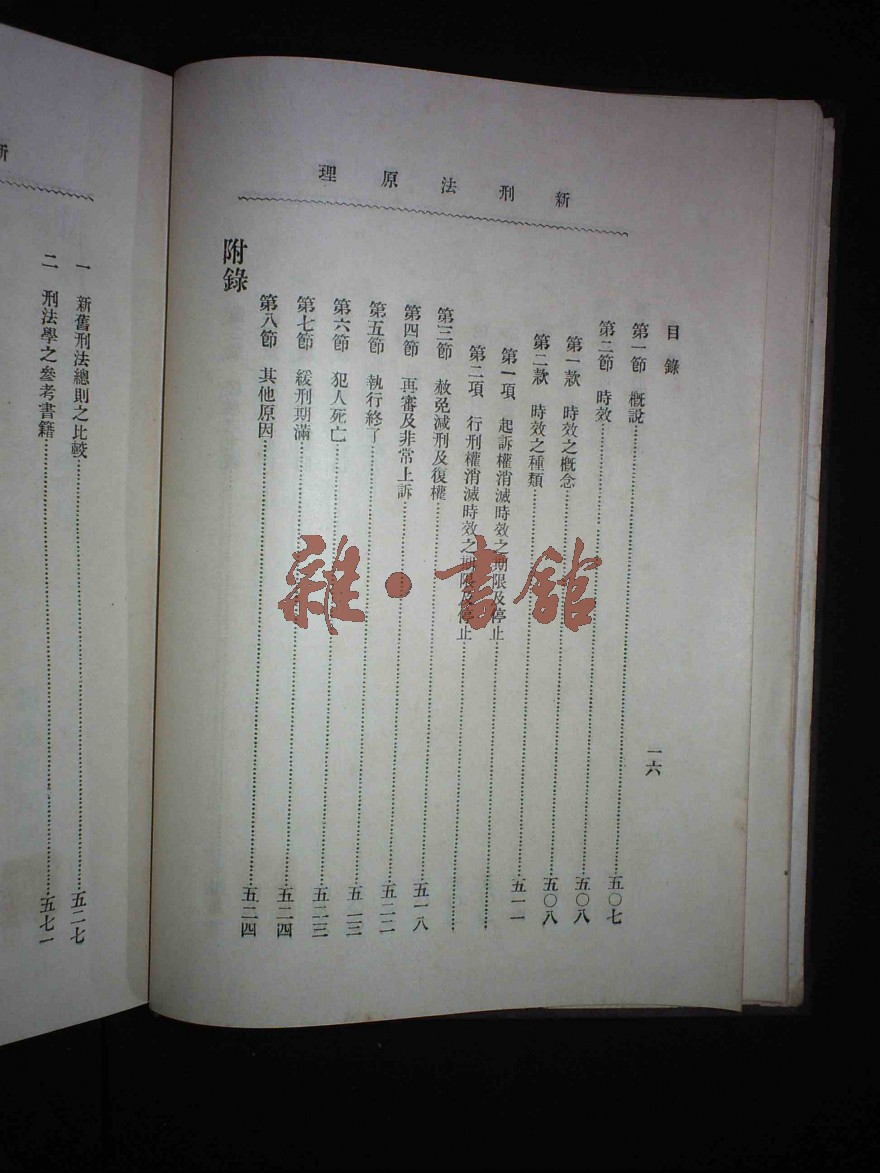 新刑法原理
目錄
一六
第一節 概說……五〇七
第二節 時效……五〇八
第一款 時效之概念……五〇八
第二款 時效之種類……五一一
第一項 起訴權消滅時效之期限及停止……
第二項 行刑權消滅時效之期限及停止……
第三節 赦免減刑及復權……五一八
第四節 再審及非常上訴……五二二
第五節 執行終了……五二三
第六節 犯人死亡……五二三
第七節 緩刑期滿……五二四
第八節 其他原因……五二四
附錄
一 新舊刑法總則之比較……五二七
二 刑法學之參考書籍……五七一
雜·書館